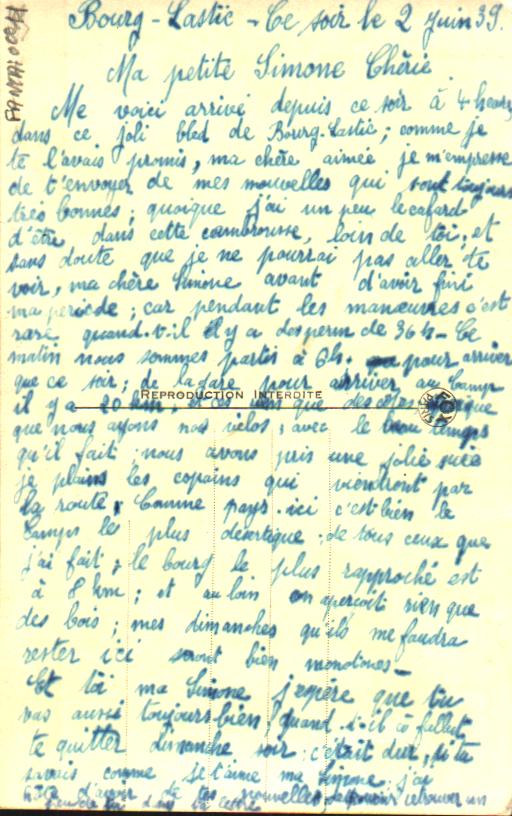 Bourg-Lastic - Ce soir le 2 Juin 39.
Ma petite Simone Chérie
Me voici arrivé depuis ce soir à 4 heures
dans ce joli bled de Bourg-Lastic ; comme je
te l'avais promis, ma chère aimée je m'empresse
de t'envoyer de mes nouvelles qui sont toujours
très bonnes ; quoique j'ai un peu le cafard
d'être dans cette cambrousse, loin de toi, et
sans doute que je ne pourrai pas aller te
voir, ma chère Simone avant d'avoir fini
ma période ; car pendant les manœuvres c'est
rare quand-v-il il y a des perm de 36 h - Ce
matin nous sommes partis à 6h. pour arriver
que ce soir ; de la gare pour arriver au Camp
il y a 20 km ; et ces rien que des côtes
REPRODUCTION INTERDITE
que nous ayons nos vélos ; avec le beau temps
qu'il fait. nous avons pris une jolie suée
je plains les copains qui viendront par
la route ; Comme pays ici c'est bien le
Camps le plus désertique de tous ceux que
j'ai fait ; le bourg le plus rapproché est
à 8 km ; et au loin on aperçoit rien que
des bois ; mes dimanches qu'ils me faudra
rester ici seront bien monotones -
Et toi ma Simone j'espère que tu
vas aussi toujours bien, quand il à fallut
te quitter dimanche soir c'était dur, si tu
savais comme je t'aime ma Simone j'ai
hâte d'avoir de tes nouvelles, de pouvoir retrouver un
peu de toi dans ta lettre